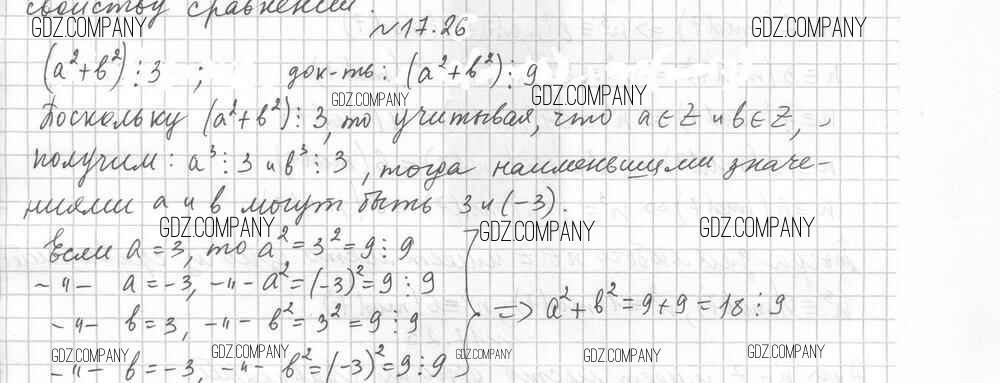 свойству сравнений.
GDZ.COMPANY GDZ.COMPANY
№17.26
(a²+b²)⋮3 ; док-ть: (a²+b²)⋮9
GDZ.COMPANY GDZ.COMPANY
Поскольку (a²+b²)⋮3, то учитывая, что a∈Z и b∈Z,
получим: a³⋮3 и b³⋮3, тогда наименьшими значе-
ниями a и b могут быть 3 и (-3).
GDZ.COMPANY GDZ.COMPANY GDZ.COMPANY
Если a=3, то a²=3²=9⋮9
-"- a=-3, -"- a²=(-3)²=9⋮9
-"- b=3, -"- b²=3²=9⋮9
=> a²+b²=9+9=18⋮9
GDZ.COMPANY GDZ.COMPANY GDZ.COMPANY GDZ.COMPANY GDZ.COMPANY
-"- b=-3, -"- b²=(-3)²=9⋮9